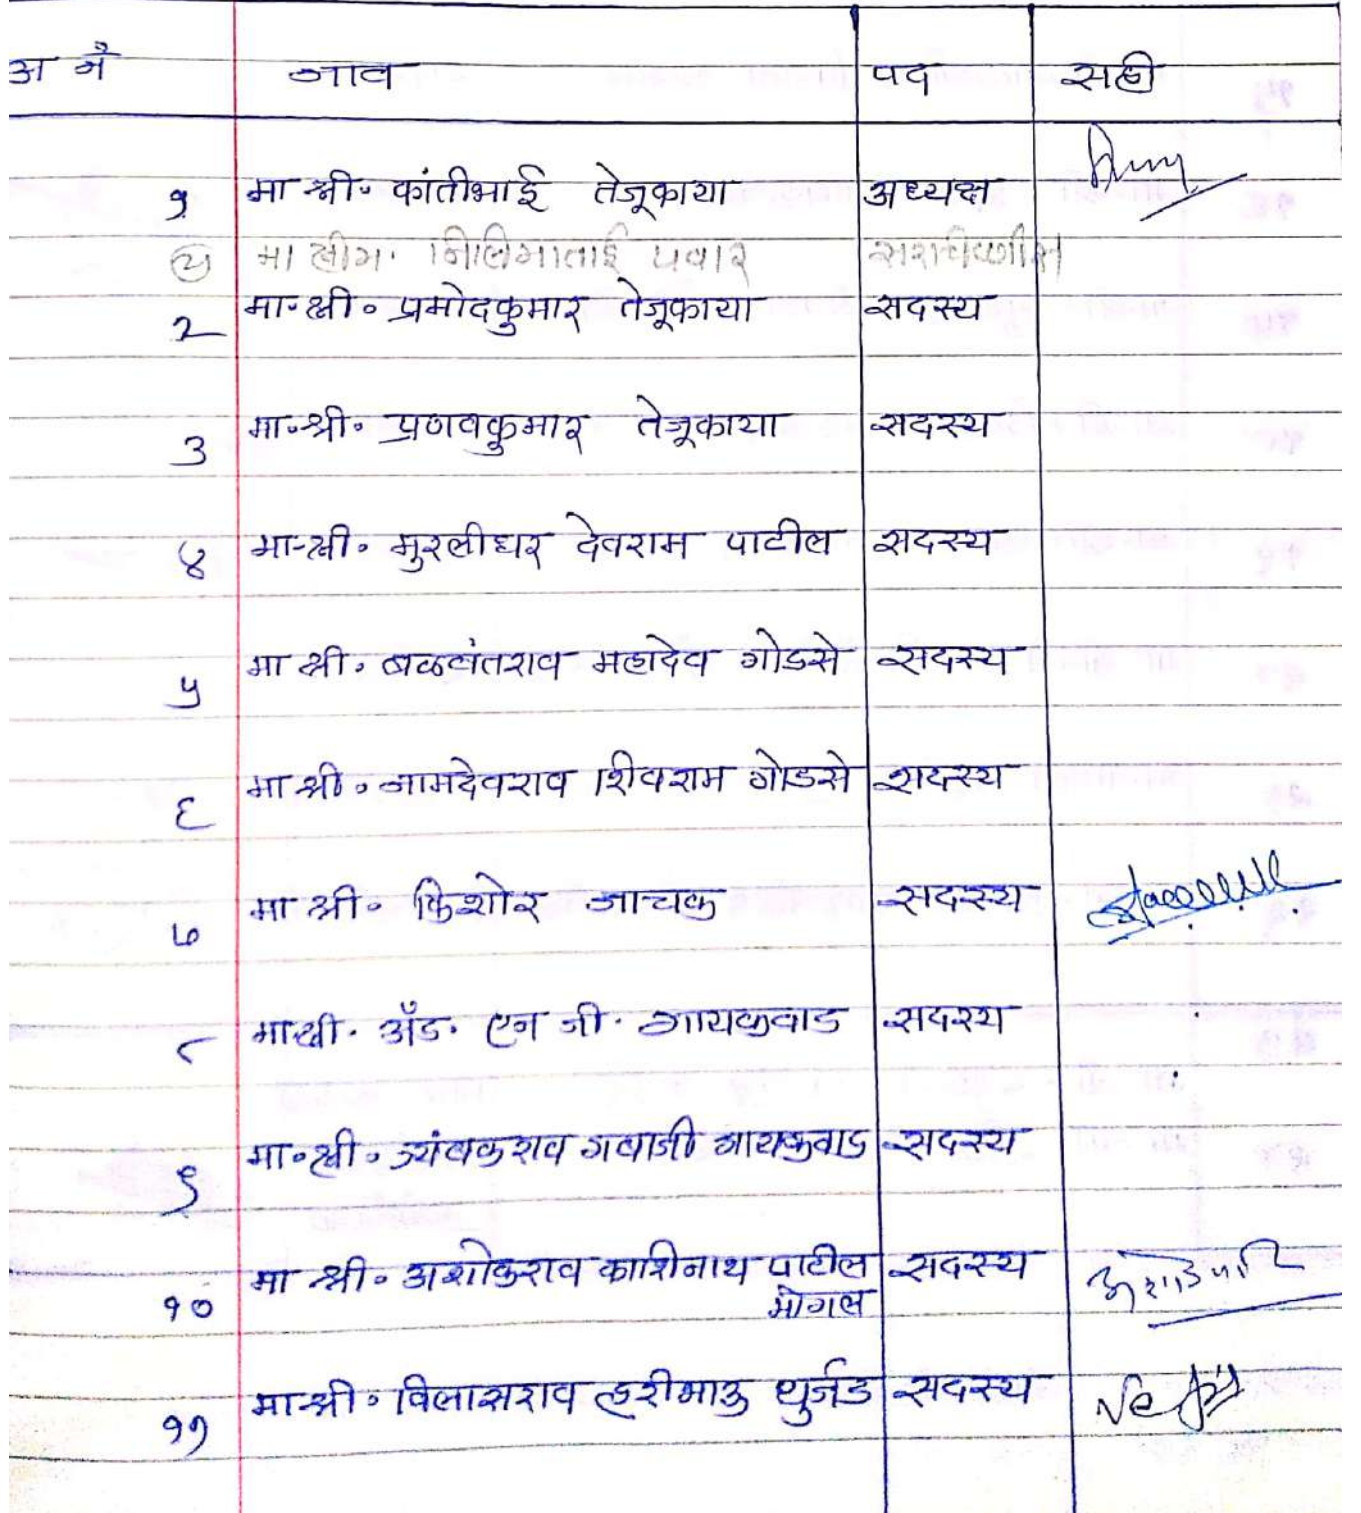 अ नं नाव पद सही
१ मा श्री. कांतीभाई तेजूकाया अध्यक्ष
२ मा श्रीम. निलिमाताई पवार सरचिटणीस
२ मा. श्री. प्रमोदकुमार तेजूकाया सदस्य
३ मा. श्री. प्रणवकुमार तेजूकाया सदस्य
४ मा. श्री. मुरलीधर देवराम पाटील सदस्य
५ मा श्री. बळवंतराव महादेव गोडसे सदस्य
६ मा श्री. नामदेवराव शिवराम गोडसे सदस्य
७ मा श्री. किशोर जाचक सदस्य
८ मा श्री. अँड. एन जी. गायकवाड सदस्य
९ मा. श्री. त्र्यंबकराव गबाजी गायकवाड सदस्य
१० मा श्री. अशोकराव काशिनाथ पाटील सदस्य
मोगल
११ मा श्री. विलासराव हरीभाऊ धुर्जड सदस्य